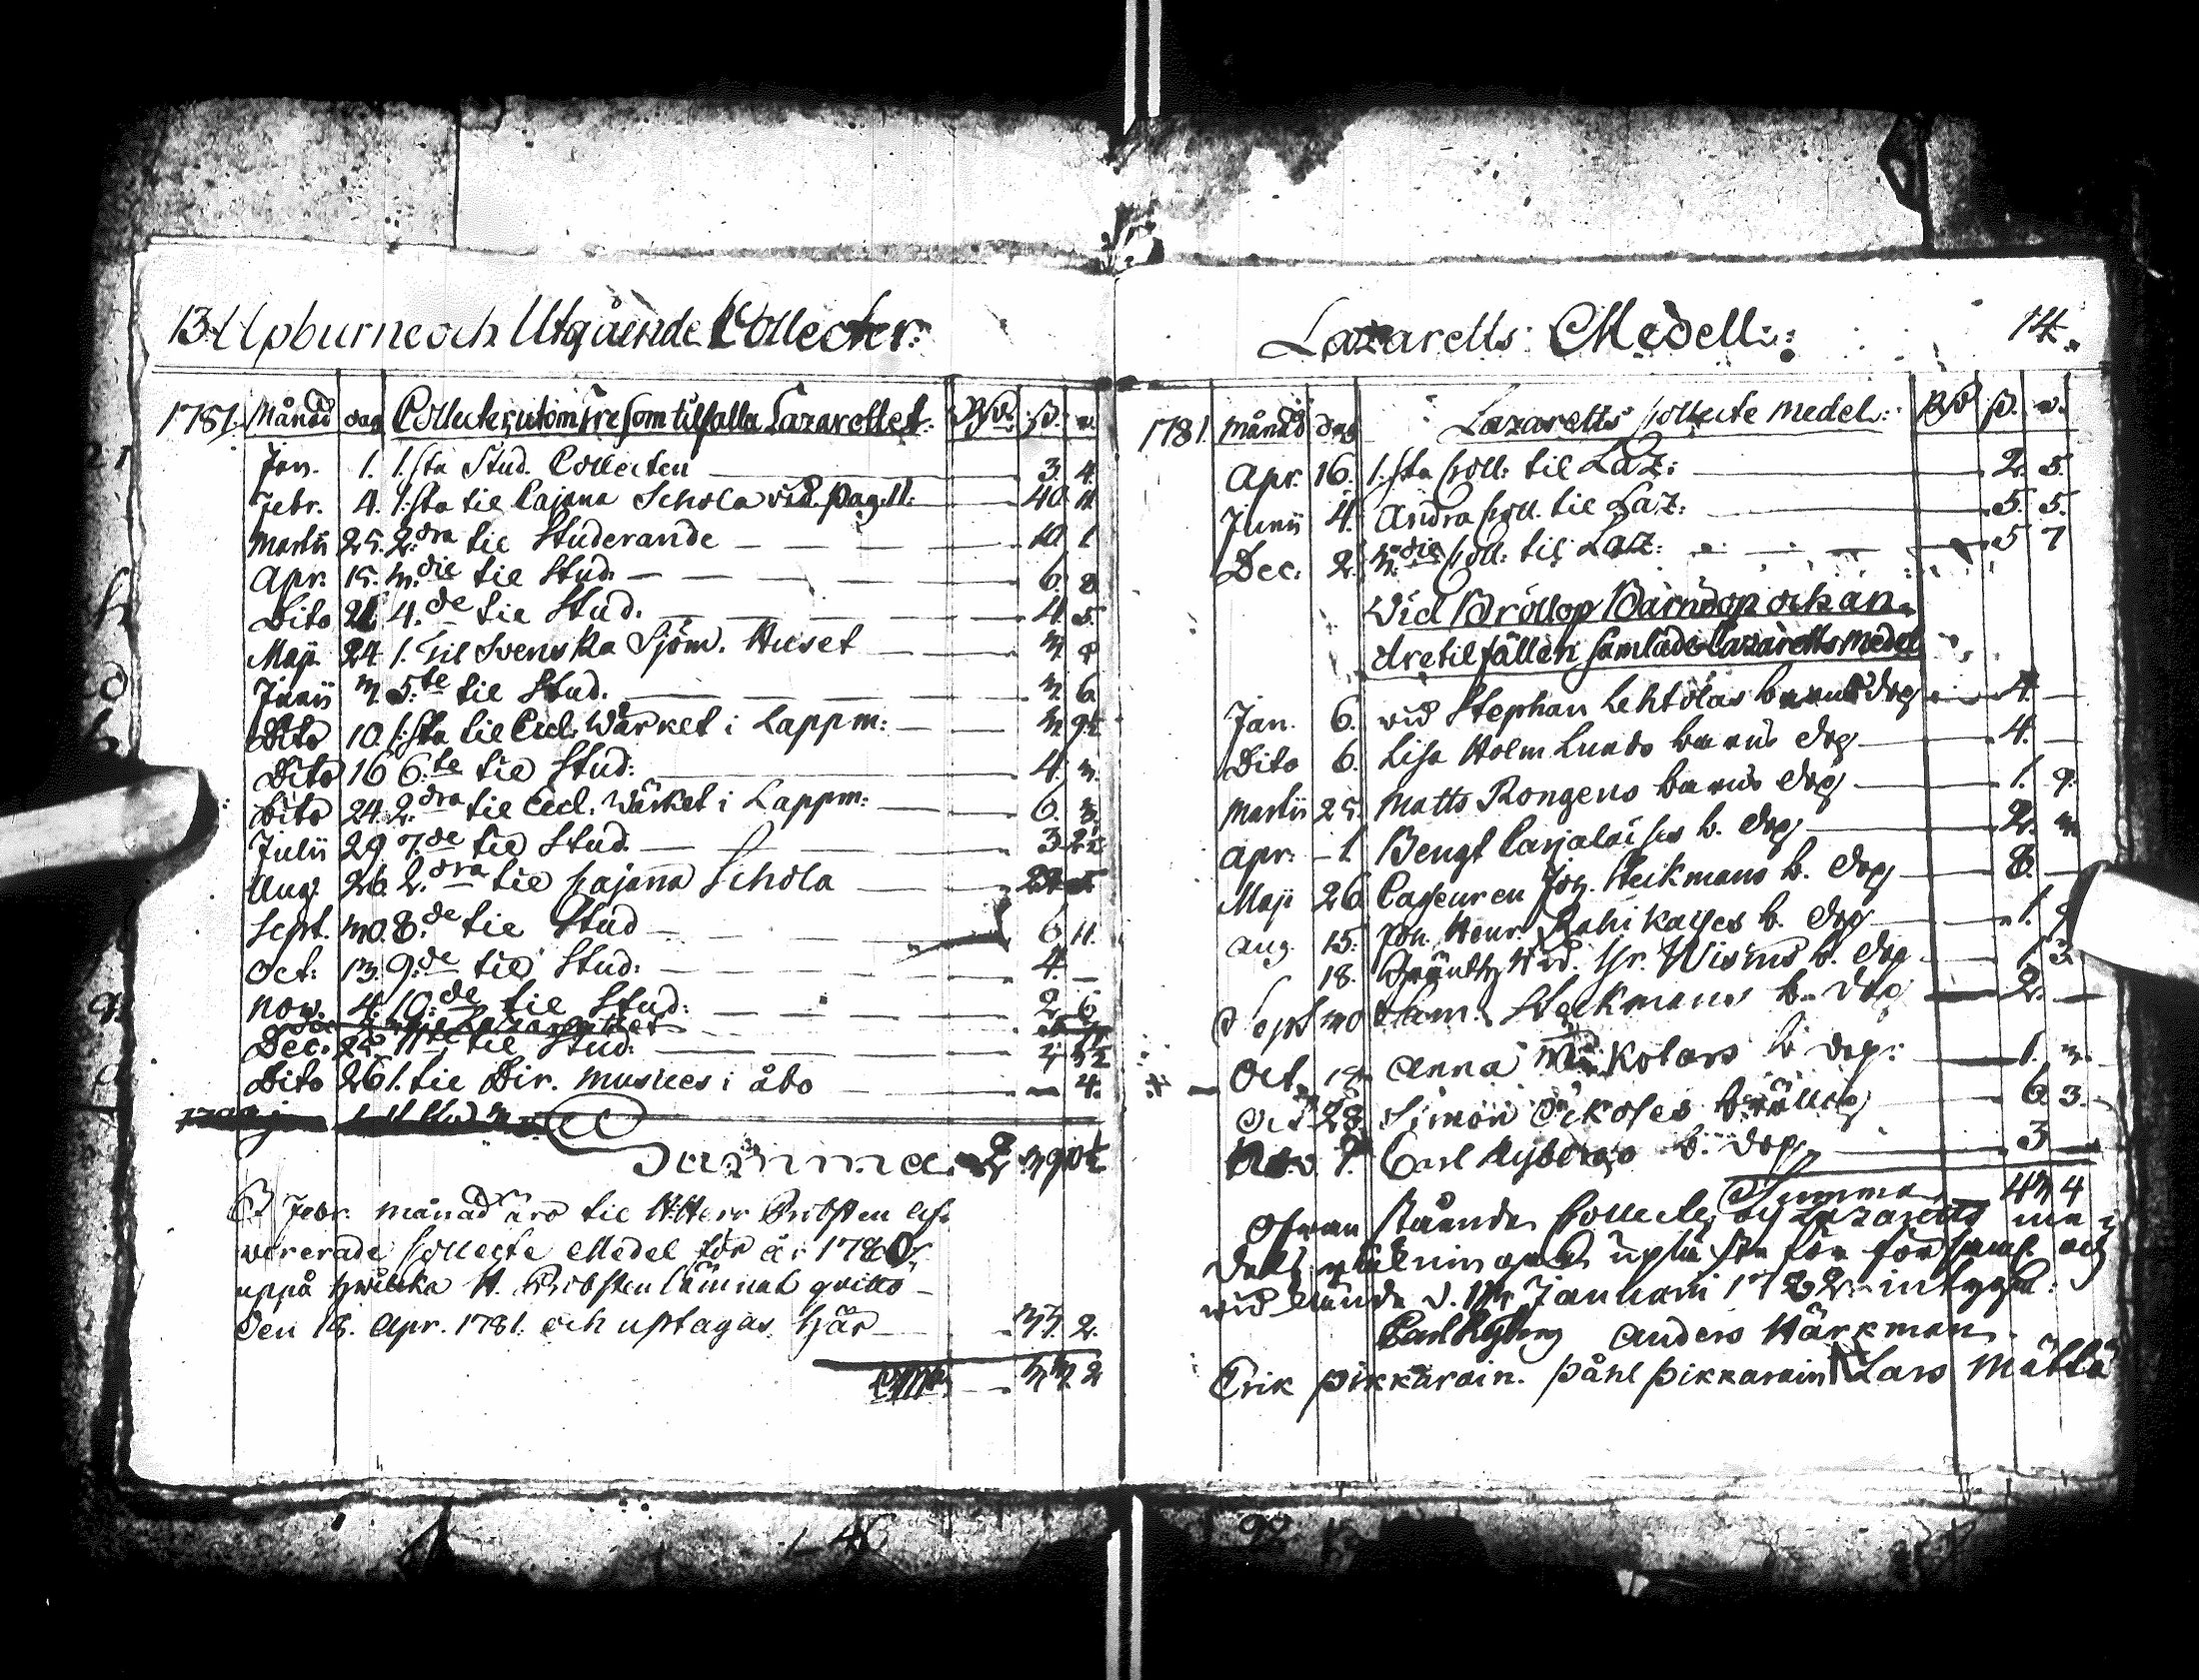 13 Upburne och Utgående Collecter:
1781. Månad dag Collecter, utom dre som tilfalla Lazarettet. Rd. s. r.
Jan. 1. 1:sta Stud. Collecten 3. 4.
Febr. 4. 1:sta til Cajana Schola vid 40 11
Martii 25. 2:dra til Studerande 10 1
Apr. 15. 3:die til Stud. 6. 8
Dito 4:de til Stud. 4. 5.
Maji 24. 1. Til Svenska Sjöm. Huset 3.
Junii 3. 5:te til Stud. 3. 6
Dito 10. 1:sta til Eccl. Wärket i Lappm: 3 9½
Dito 16 6:te til Stud: 4. 3.
Dito 24. 2:dra til Eccl. Wärket i Lappm: 6. 3.
Julii 29 7:de til Stud. 3 2½
Aug. 26 2:dra til Cajana Schola
Sept. 30. 8:de til Stud 6 11.
Oct: 13. 9:de til Stud: 4. —
Nov. 4. 10:de til Stud: 2 6
Dec. 25. 11:te til Stud:
Dito 26 1. til Dir. Musices i åbo — 4.
Summa
I Febr. månad äro til H:Herr Probsten lef-
vererade Collecte Medel för år 1780,
uppå hvilcka H. Probsten lämnat qvitto
den 18. Apr. 1781. och uptagas här 33. 2.
33. 2
Lazaretts Medell: 14.
1781. Månad dag Lazaretts Collecte Medel: Rd s. r.
Apr. 16. 1:sta Coll: til Laz: 2. 5.
Junii 4. Andra Coll. til Laz: 5. 5.
Dec: 2. 3:die Coll: til Laz: 5 7
Vid Bröllop Barndop och an-
dre tilfällen samlade Lazaretts Medel
Jan. 6. vid Stephan Lehtolas barns dop 4. —
Dito 6. Lisa Holmlunds barns dop 4. —
Martii 25. Matts Rongens barns dop 1. 9.
Apr: 1. Bengt Carjalaises b. dop 2. 3
Maji 26 Capeuren Joh. Steckmans b. dop 8. —
Aug. 15. Joh. Henr. Rahikases b. dop 1.
18. b. dop 1 3.
Sept 30 Sam. Steckmans b. dop 2. —
Oct. Anna b. dop: 1. 3.
Oct. 28. Simon bröllop 6 3.
Nov. Carl Rybergs b. dop 3 —
Summa 43 4
Ofvan stående Collecte och Lazaretts me-
dels räkning är upläsen för församl. och
Januarii 1782 intygar:
Carl Ryberg Anders Härkman.
Erik Pikkarain. Påhl Pikkarain Lars Mättä